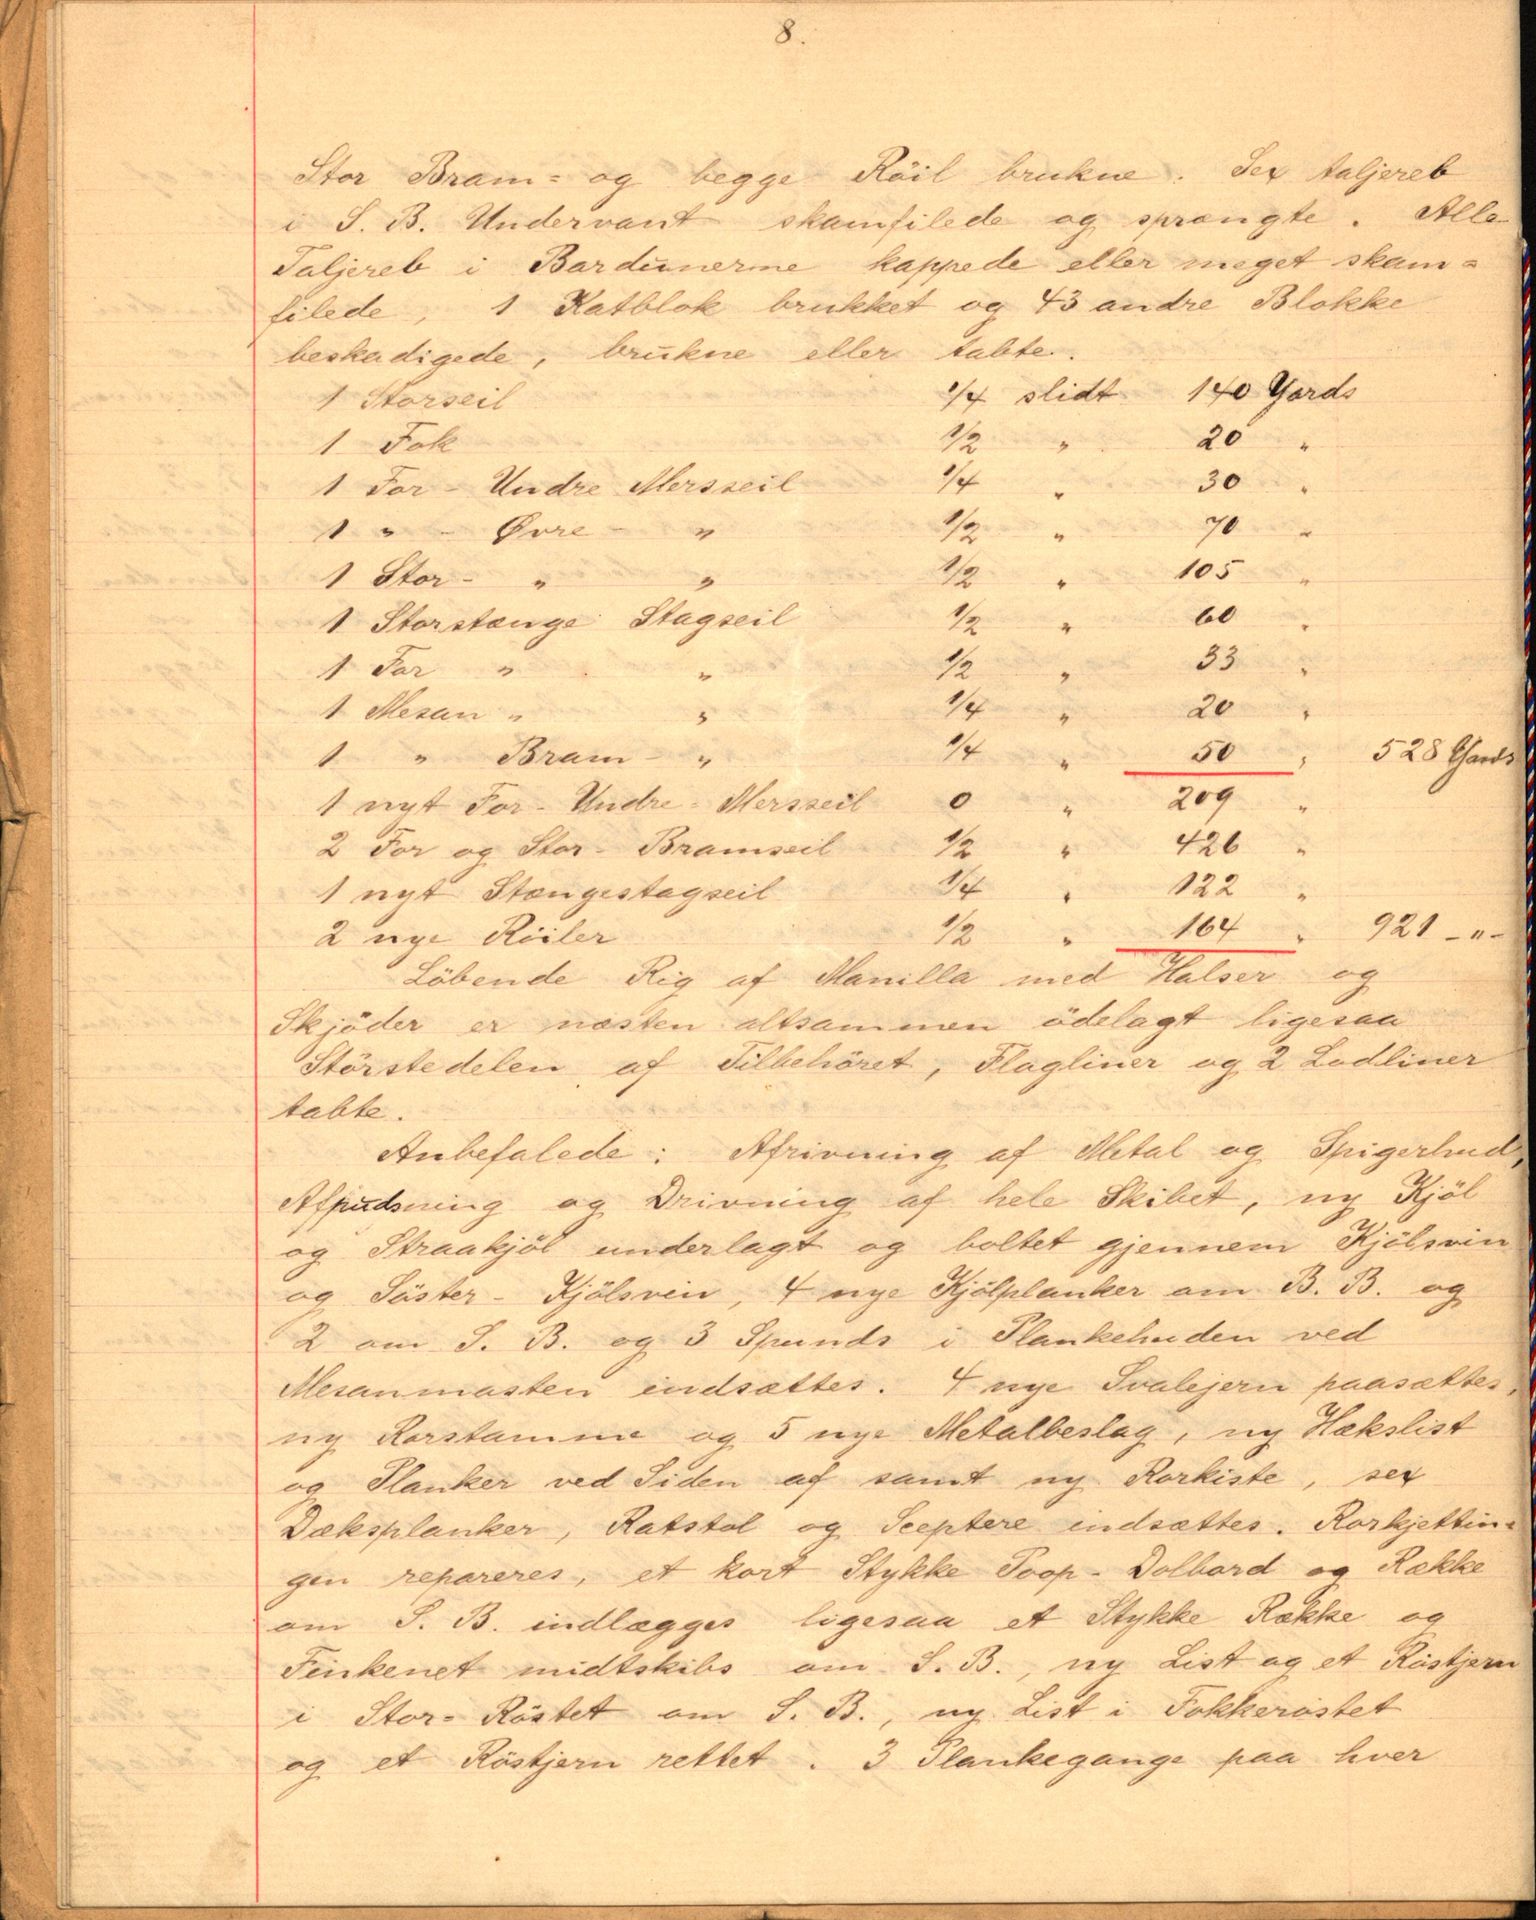 8.
Stor Bram= og begge Röil brukne. Sex taljereb
i S. B. Undervant skamfilede og sprængte. Alle
Taljereb i Bardunerne kappede eller meget skam=
filede, 1 Katblok brukket og 43 andre Blokke
beskadigede, brukne eller tabte.
1 Storseil 1/4 slidt 140 Yards
1 Fok 1/2 " 20 "
1 For - Undre Mersseil 1/4 " 30 "
1 " - Øvre - " 1/2 " 70 "
1 Stor - " " 1/2 " 105 "
1 Storstænge Stagseil 1/2 " 60 "
1 For " " 1/2 " 33 "
1 Mesan " " 1/4 " 20 "
1 " Bram - " 1/4 " 50 " 528 Yards
1 nyt For - Undre - Mersseil 0 " 209 "
2 For og Stor - Bramseil 1/2 " 426 "
1 nyt Stængestagseil 1/4 " 122 "
2 nye Röiler 1/2 " 164 " 921 -"-
Löbende Rig af Manilla med Halser og
Skjöder er næsten altsammen ödelagt ligesaa
Störstedelen af Tilbehöret, Flagliner og 2 Lodliner
tabte.
Anbefalede: Afrivning af Metal og Spigerhud,
Afpudsning og Drivning af hele Skibet, ny Kjöl
og Straakjöl underlagt og boltet gjennem Kjölsvin
og Söster - Kjölsvin, 4 nye Kjölplanker om B. B. og
2 om S. B. og 3 Spunds i Plankehuden ved
Mesanmasten indsættes. 4 nye Svalejern paasættes,
ny Rorstamme og 5 nye Metalbeslag, ny Hækslist
og Planker ved Siden af samt ny Rorkiste, sex
Dæksplanker, Ratstol og Sceptere indsættes. Rorkjettin=
gen repareres, et kort Stykke Poop - Dolbord og Række
om S. B. indlægges ligesaa et Stykke Række og
Finkenet midtskibs om S. B., ny List og et Röstjern
i Stor= Röstet om S. B., ny List i Fokkeröstet
og et Röstjern rettet. 3 Plankegange paa hver